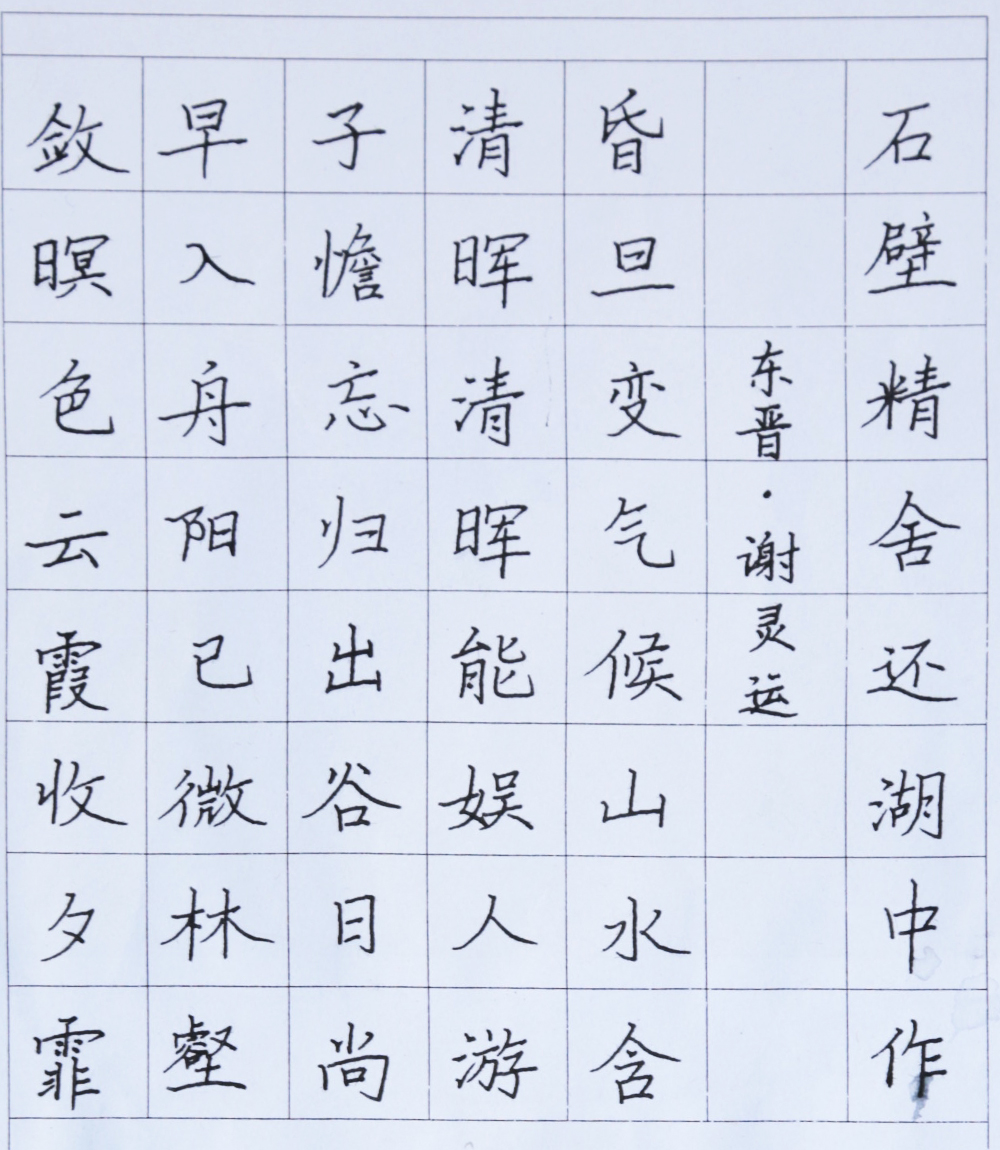 石壁精舍还湖中作
东晋·谢灵运
昏旦变气候山水含
清晖清晖能娱人游
子憺忘归出谷日尚
早入舟阳已微林壑
敛暝色云霞收夕霏